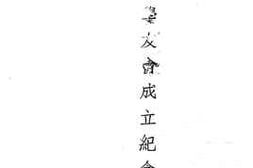 友會成立紀念